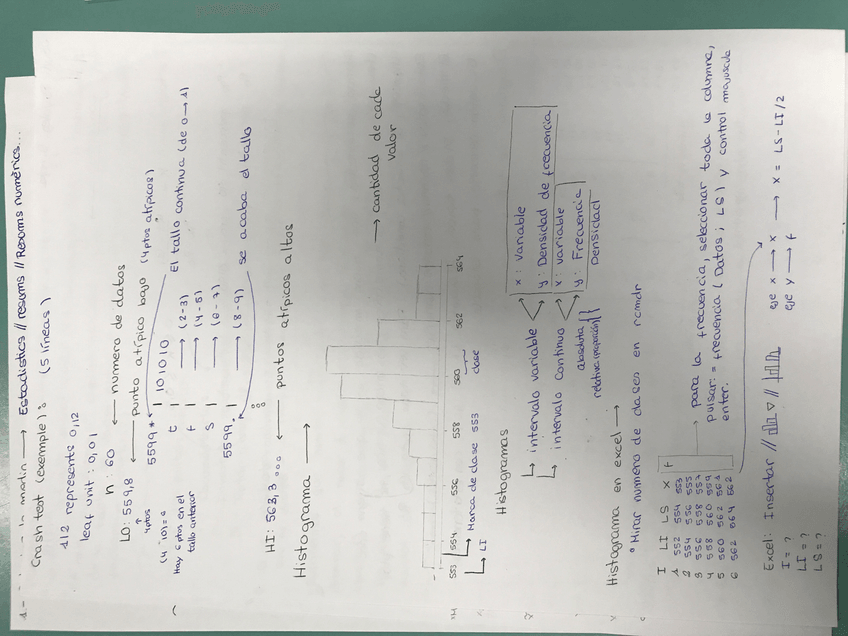 Estadístics // resums // Resums numèrics...
Crash test (exemple): (5 líneas)
1|2 represents 0,12
leaf unit: 0,01
n: 60 ← numero de datos
LO: 559,8 ← punto atípico bajo (4 ptos atípicos)
4 ptos
5599* | 1,101010
El tallo continua (de 0 → 1)
(4, 10) = 6
Hay 6 ptos en el tallo anterior
t | → (2-3)
f | → (4-5)
S | → (6-7)
5599. | → (8-9)
se acaba el tallo
HI: 563,3... ← puntos atípicos altos
Histograma →
→ cantidad de cada valor
553 554 556 558 560 562 564
clase
Marca de clase 553
LI
Histogramas
intervalo variable
x: Variable
y: Densidad de frecuencia
intervalo continuo
x: variable
y: Frecuencia
Densidad
absoluta
relativa (proporción)
Histograma en excel →
• Mirar numero de clases en rcmdr
I LI LS x f
1 552 554 553
2 554 556 555
3 556 558 557
4 558 560 559
5 560 562 561
6 562 564 562
→ para la frecuencia, seleccionar toda la columna,
pulsar = frecuencia (Datos; LS) y control mayuscula
enter.
Excel: Insertar //
I = ?
LI = ?
LS = ?
eje x → x → x = LS - LI/2
eje y → f